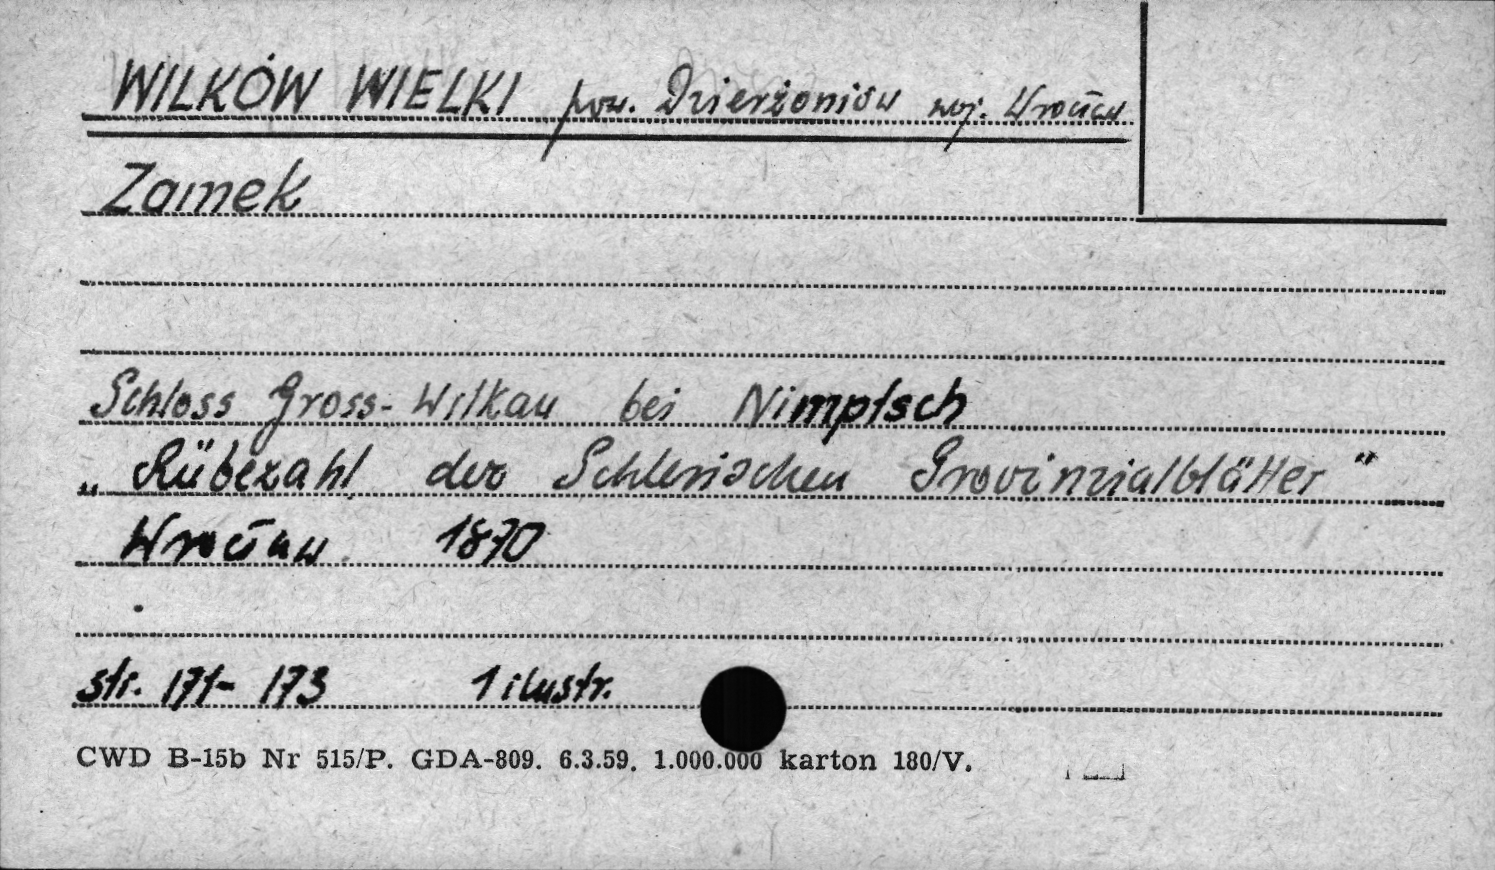 WILKÓW WIELKI pow. Dzierżoniów woj. Wrocław
Zamek
Schloss Gross-Wilkau bei Nimptsch
„Rübezahl der Schlesischen Provinzialblätter"
Wrocław 1870
str. 171-173 1 ilustr.
CWD B-15b Nr 515/P. GDA-809. 6.3.59. 1.000.000 karton 180/V.